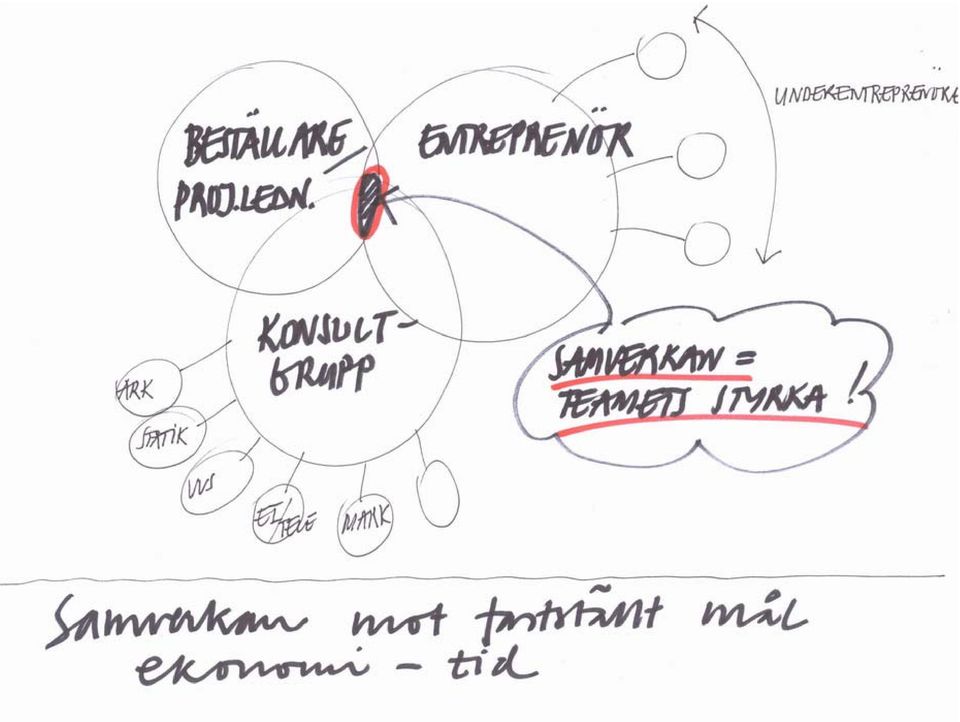 BESTÄLLARE
PROJ.LEDN.
ENTREPRENÖR
UNDERENTREPRENÖRE
KONSULT-
GRUPP
SAMVERKAN =
TEAMETS STYRKA !
ARK
STATIK
VVS
EL/
TELE
MARK
Samverkan mot fastställt mål
ekonomi - tid